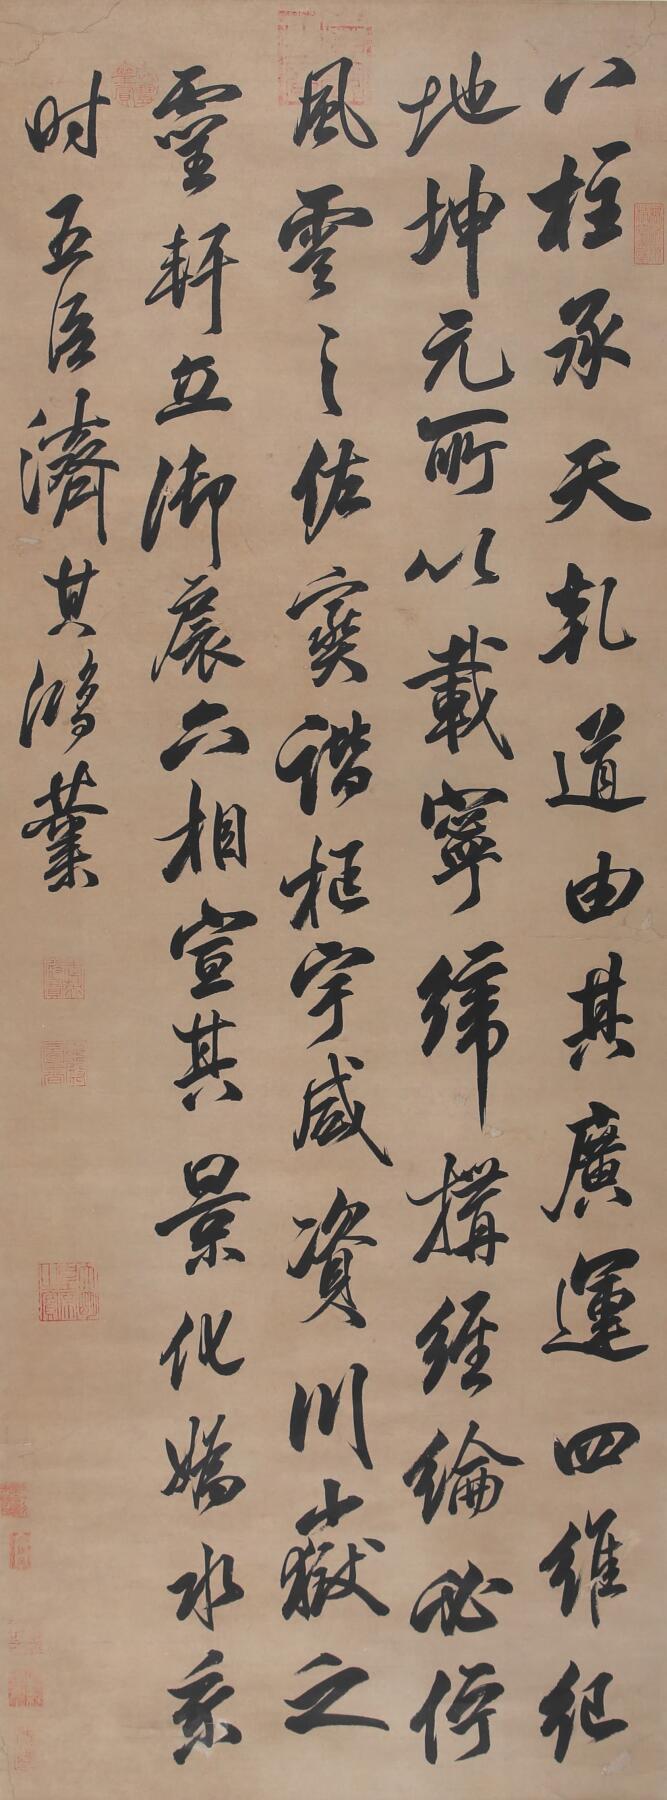 八柱承天乹道由其廣運四維紀
地坤元所以載寧緯構經綸必佇
風雲之佐寅諧框宇咸資川嶽之
靈軒丘御扆六相宣其景化媯水乘
时五臣濟其鴻業